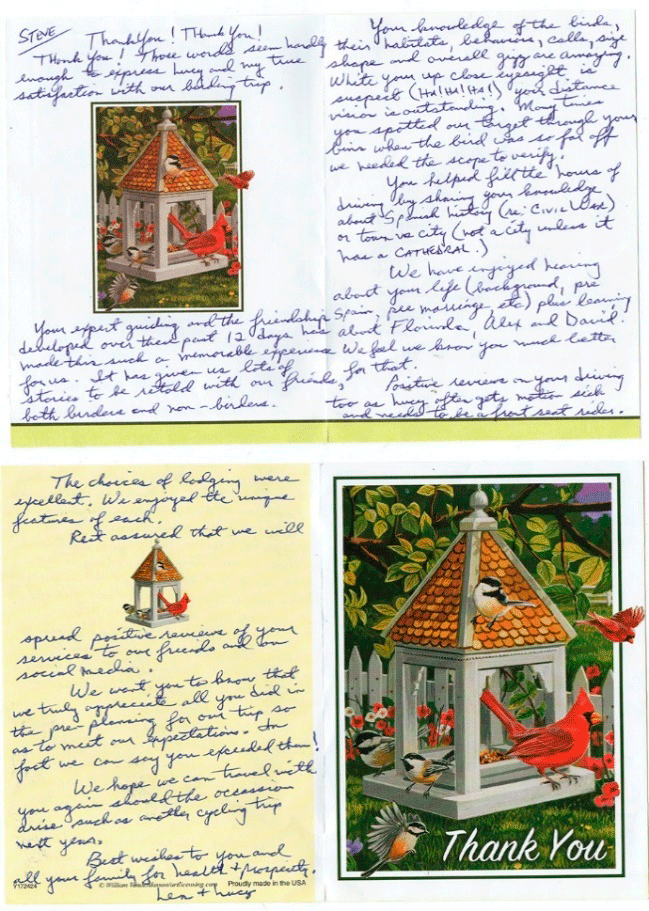 STEVE
ThankYou! THankYou!
THank You! Those words seem hardly
enough to express Lucy and my true
satisfaction with our birding trip.
Your expert guiding and the friendship
developed over these past 12 days has
made this such a memorable experience
for us. It has given us lots of
stories to be retold with our friends,
both birders and non-birders.
Your knowledge of the birds,
their habitats, behaviors, calls, size
shape and overall gizz are amazing.
While your up close eyesight is
suspect (HA! HA! HA!) your distance
vision is outstanding. Many times
you spotted our target through your
bins when the bird was so far off
we needed the scope to verify.
You helped fill the hours of
driving by sharing your knowledge
about Spanish history (re: CIVIL WAR)
or town vs city (not a city unless it
has a CATHEDRAL.)
We have enjoyed hearing
about your life (background, pre
Spain, pre marriage, etc) plus learning
about Florinda, Alex and David.
We feel we know you much better
for that.
Positive reviews on your driving
too as Lucy often gets motion sick
and needs to be a front seat rider.
The choices of lodging were
excellent. We enjoyed the unique
features of each.
Rest assured that we will
spread positive reviews of your
services to our friends and on
social media.
We want you to know that
we truly appreciate all you did in
the pre-planning for our trip so
as to meet our expectations. In
fact we can say you exceeded them!
We hope we can travel with
you again should the occassion
arise such as another cycling trip
next year.
Best wishes to you and
all your family for health + prosperity.
Len + Lucy
Y172424
© William Vanderdasson/artlicensing.com
Proudly made in the USA
Thank You